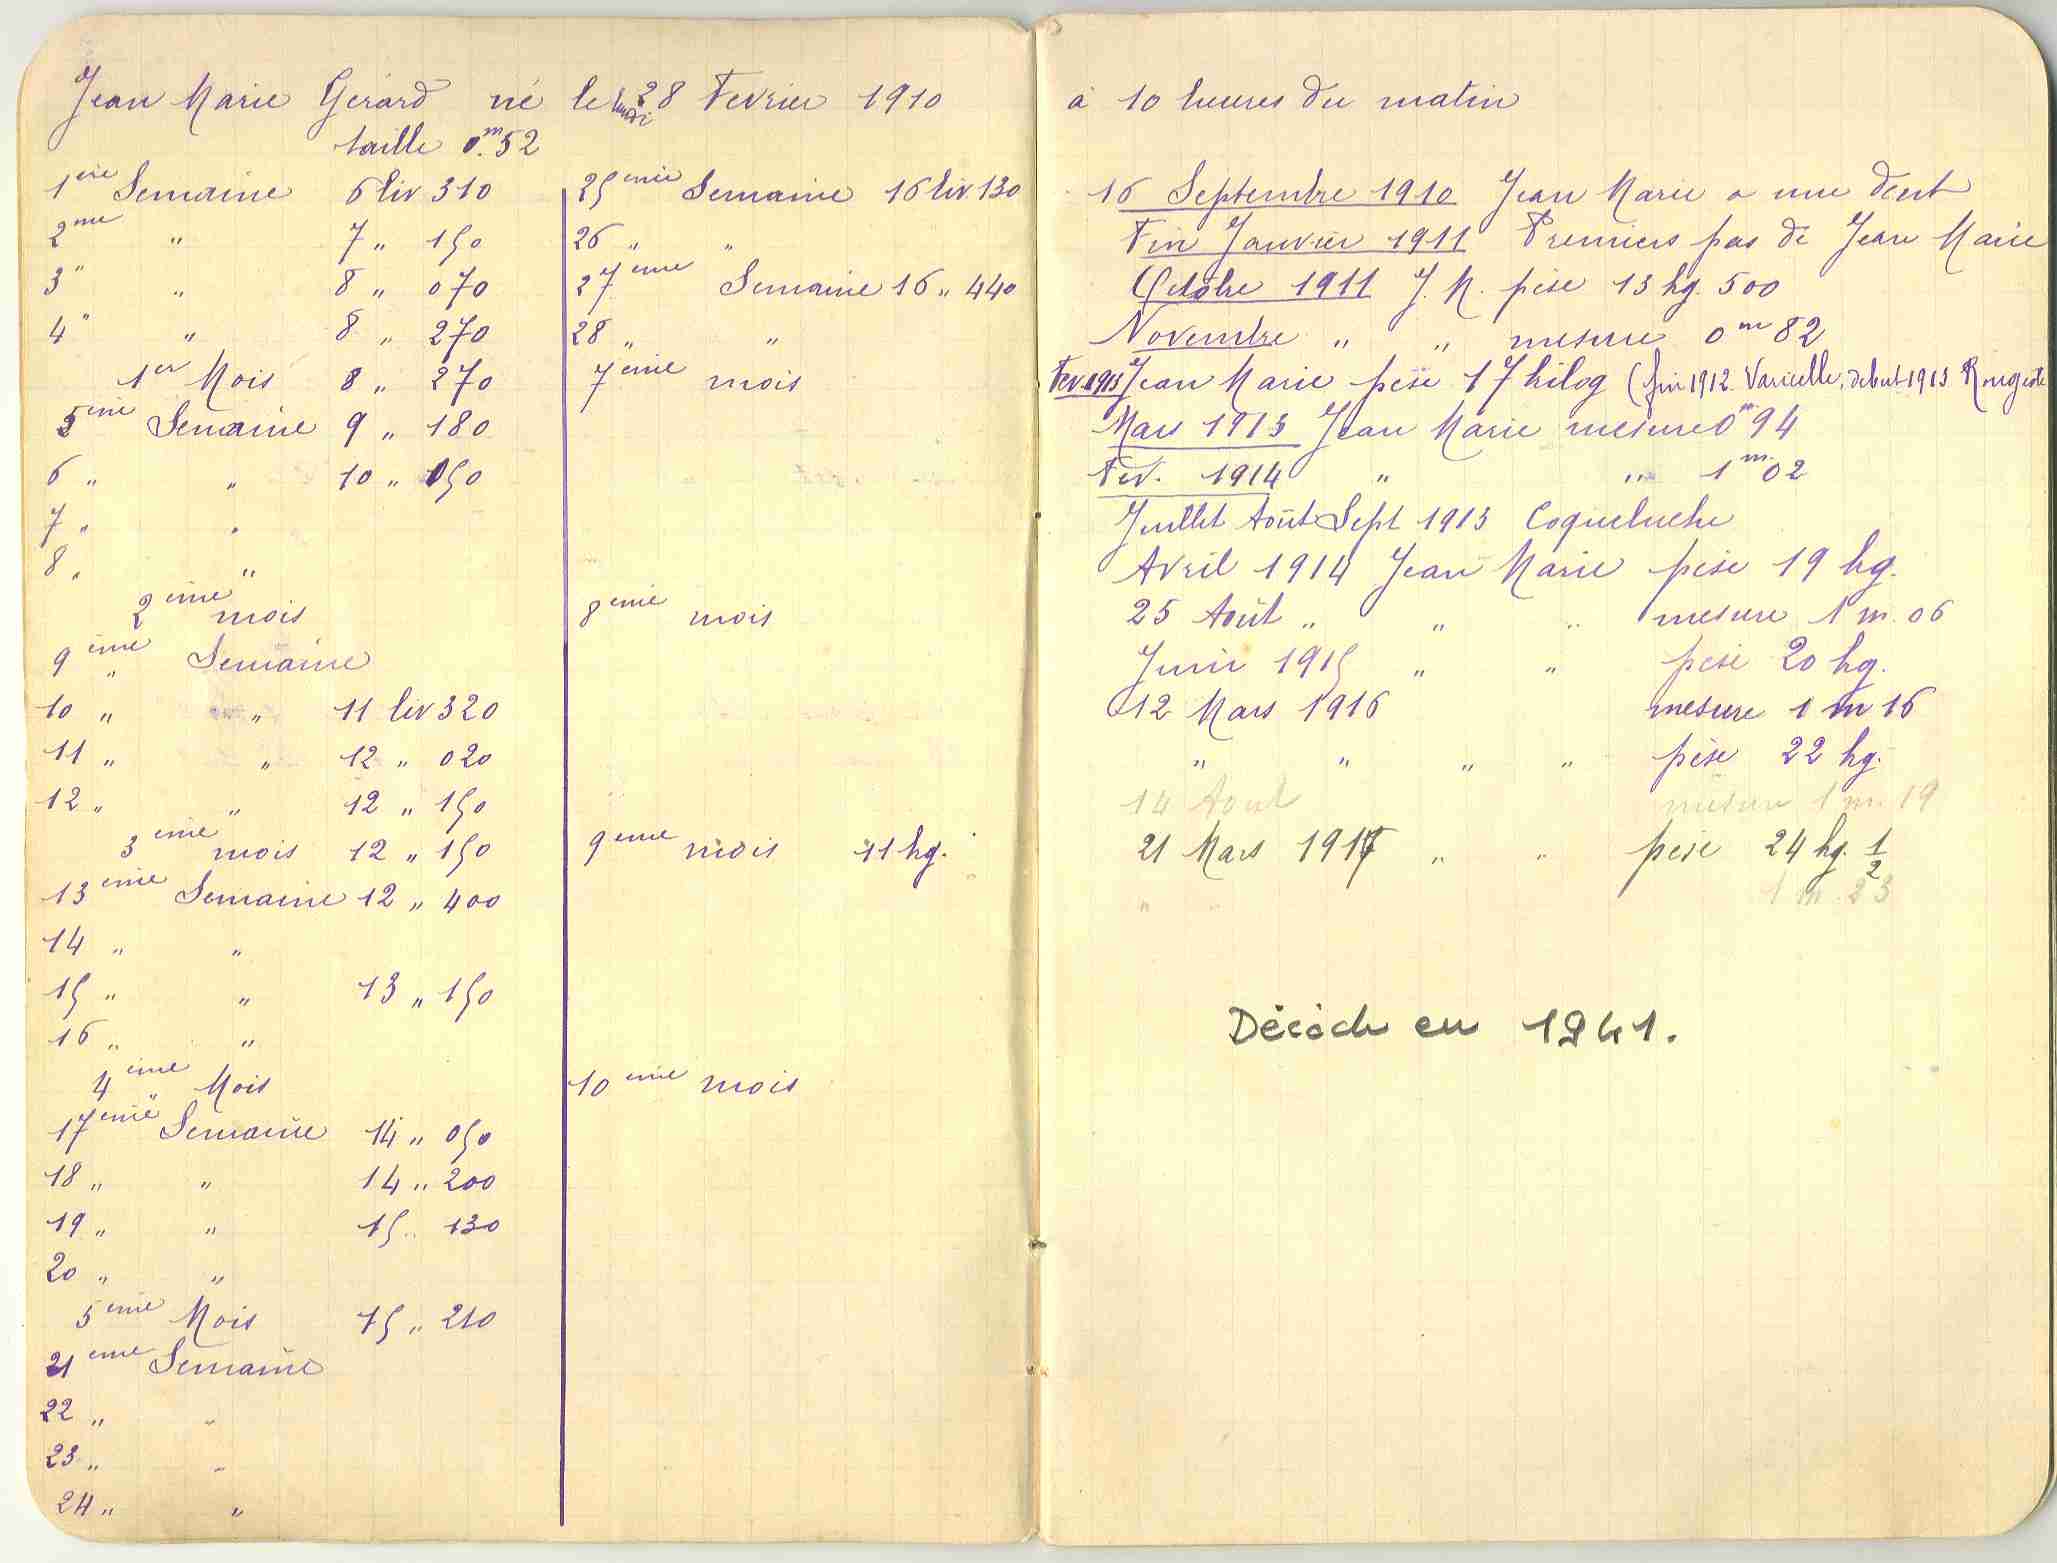 Jean Marie Gérard né le lundi 28 Fevrier 1910
taille 0.m52
1ère Semaine 6 liv 310
2me " 7 " 150
3" " 8 " 070
4" " 8 " 270
1er Mois 8 " 270
5ème Semaine 9 " 180
6 " " 10 " 050
7 " "
8 " "
2ème mois
9ème " Semaine
10 " " 11 liv 320
11 " " 12 " 020
12 " " 12 " 150
3ème mois 12 " 150
13ème Semaine 12 " 400
14 " "
15 " " 13 " 150
16 " "
4ème Mois
17ème Semaine 14 " 050
18 " " 14 " 200
19 " " 15 " 130
20 " "
5ème Mois 15 " 210
21ème Semaine
22 " "
23 " "
24 " "
25ème Semaine 16 liv. 130
26 " "
27ème Semaine 16 " 440
28 " "
7ème mois
8ème mois
9ème mois 11 hg.
10ème mois
à 10 heures du matin
16 Septembre 1910 Jean Marie a une dent
Fin Janvier 1911 Premiers pas de Jean Marie
Octobre 1911 J. M. pèse 13 hg. 500
Novembre " " mesure 0m 82
Fev. 1913 Jean Marie pèse 17 kilog (fin 1912 Varicelle, debut 1913 Rougeole
Mars 1913 Jean Marie mesure 0m94
Fev. 1914 " " 1m.02
Juillet Août Sept 1913 Coqueluche
Avril 1914 Jean Marie pèse 19 hg.
25 Août " " " mesure 1 m. 06
Juin 1915 " " pèse 20 hg.
12 Mars 1916 mesure 1 m 16
" " " " pèse 22 hg.
14 Aout mesure 1 m. 19
21 Mars 1917 " " pèse 24 hg. 1/2
" " 1 m. 23
Décédé en 1941.